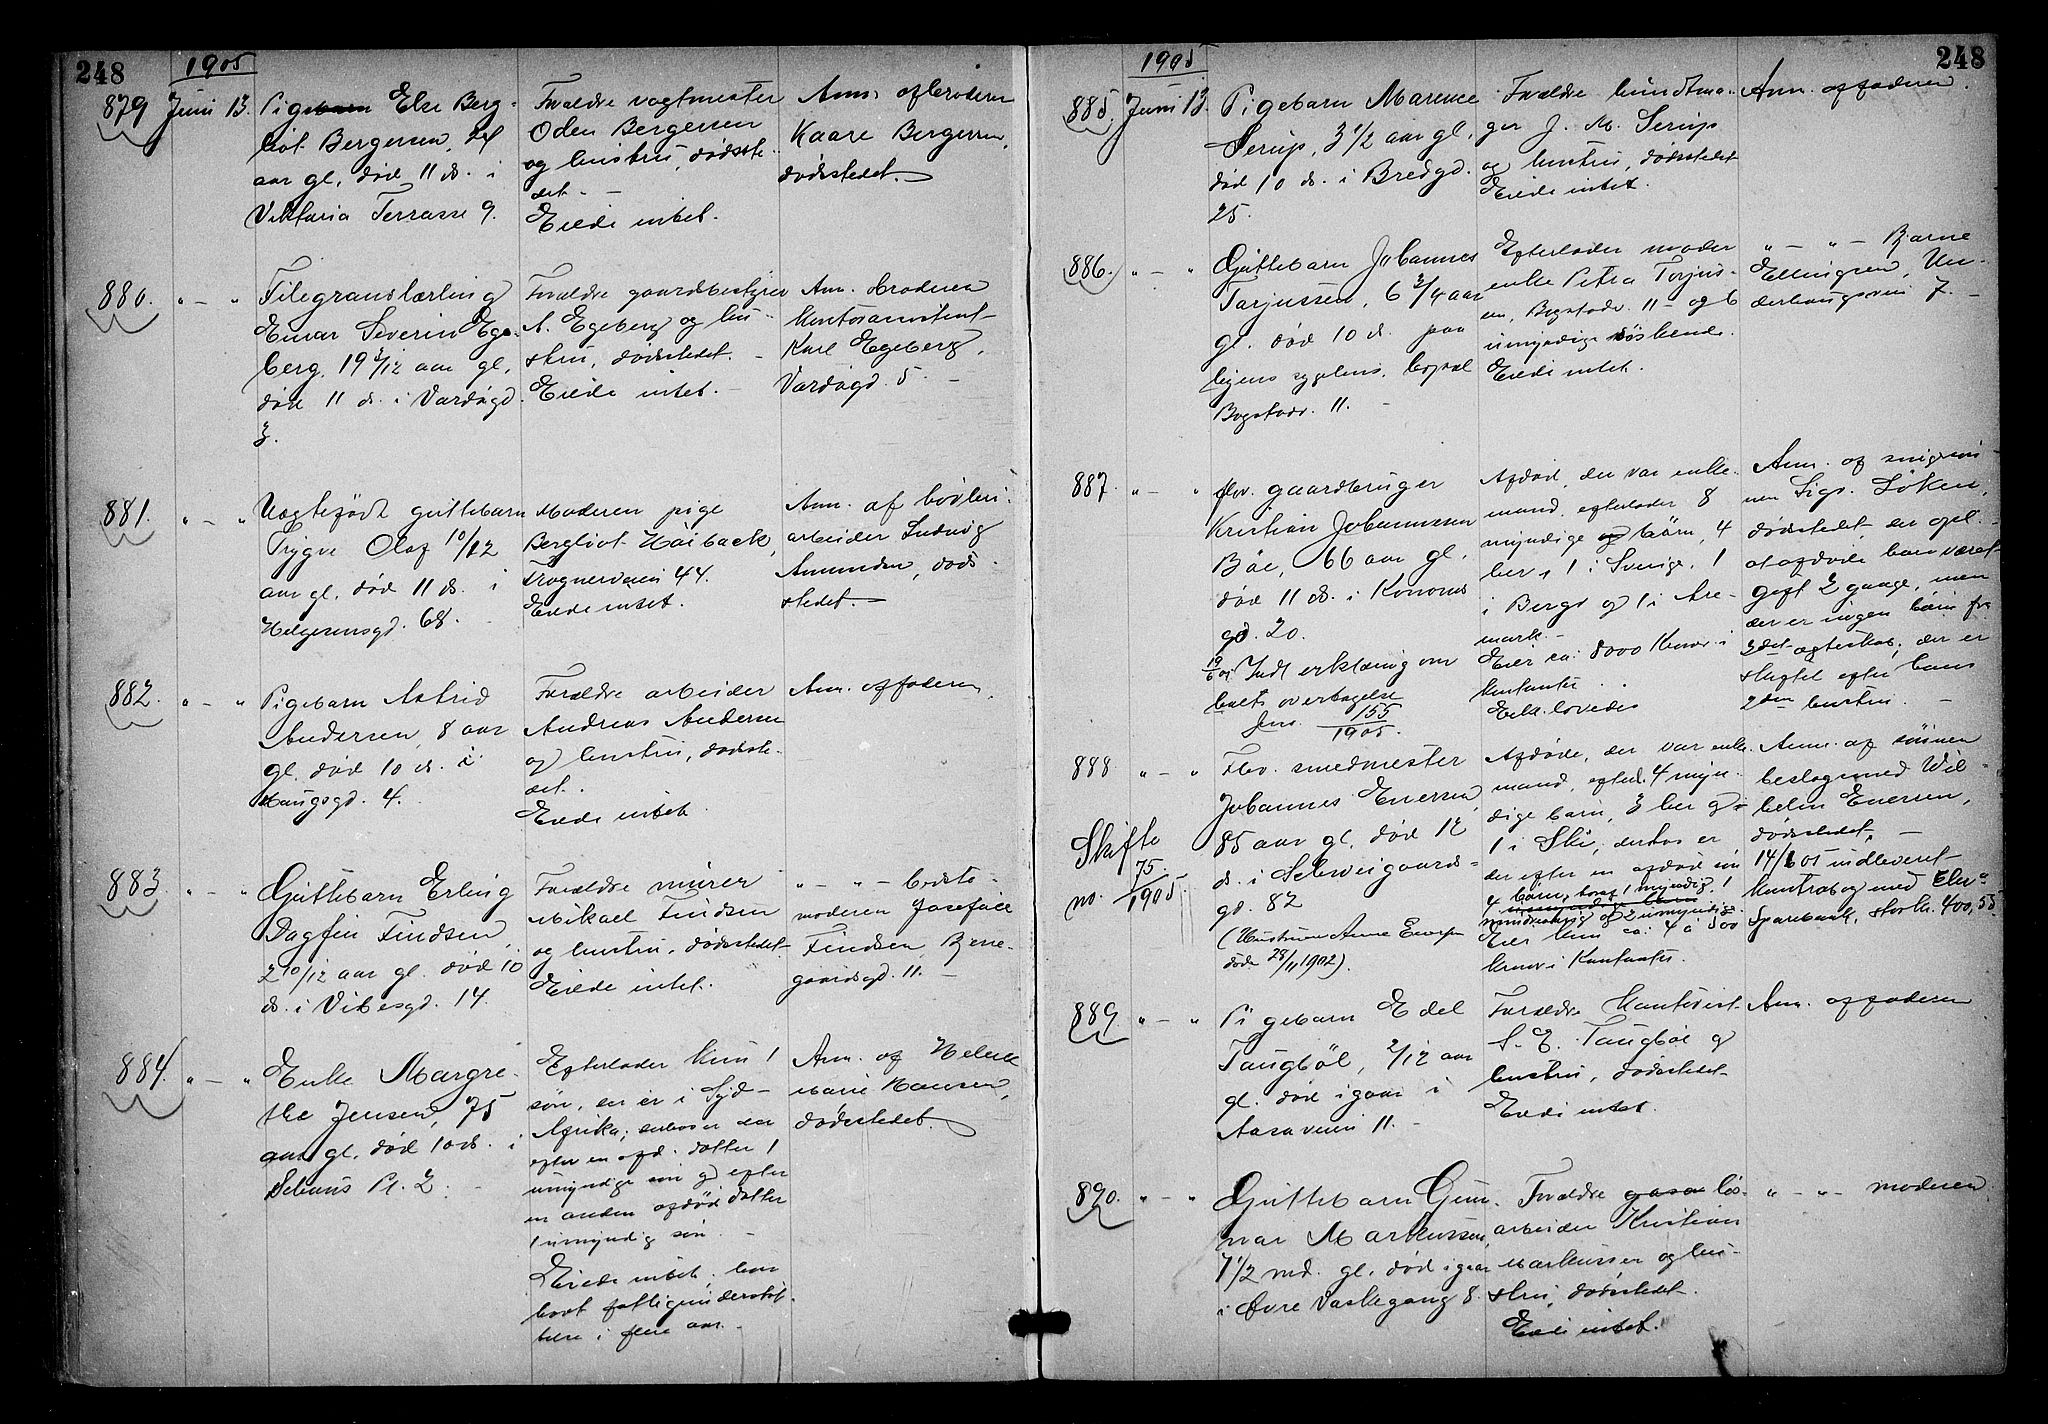 248
1905
879 Juni 13. Pigebarn Else Berg-
liot Bergersen,
aar gl., død 11 ds. i
Viktoria Terrasse 9.
Forældre vagtmester
Oden Bergersen
og hustru, dødsste-
det. -
Eiede intet.
Anm. af broderen
Kaare Bergersen,
dødsstedet.
880. " - " Filegranslærling
Einar Severin Ege-
berg, 19 3/12 aar gl,
død 11 ds. i Vardøgd.
3.
Forældre gaardbestyrer
A. Egeberg og hu-
stru, dødsstedet. -
Eiede intet. -
Anm. broderen
kontorassistent
Karl Egeberg,
Vardøgd. 5. -
881. " - " Uægtefødt guttebarn
Trygve Olaf 10/12
aar gl., død 11 ds. i
Helgesensgd. 68.
Moderen pige
Bergliot Høiback,
Frognerveien 44.
Eiede intet.
Anm. af høvleri-
arbeider Ludvig
Amundsen, døds-
stedet.
882. " - " Pigebarn Astrid
Andersen, 8 aar
gl. død 10 ds. i
Haugsgd. 4.
Forældre arbeider
Andreas Andersen
og hustru, dødsste-
det.
Eiede intet.
Anm. af faderen.
883. " - " Guttebarn Erling
Dagfin Findsen,
2 10/12 aar gl. død 10
ds. i Vibesgd. 14.
Forældre murer
Mikael Findsen
og hustru, dødsstedet.
Eiede intet.
" - " - bedste-
moderen Josefine
Findsen,
gaardsgd. 11. -
884. " - " Enke Margre-
the Jensen, 75
aar gl., død 10 ds. i
Schous Pl. 2.
Efterlader kun 1
søn, der er i Syd-
Afrika; deshos er der
efter en afd. datter 1
umyndige søn og efter
en anden afdød datter
1 umyndig søn. -
Eiede intet, har
havt fattigunderstøt-
telse i flere aar. -
Anm. af Helene
Marie Hansen,
dødsstedet.
248
1905
885. Juni 13. Pigebarn Marence
Serup, 3 1/2 aar gl,
død 10 ds. i Bredgd.
25.
Forældre hundtma-
ger J. M. Serup
og hustru, dødsstedet
Eiede intet.
Anm. af faderen.
886. " - " Guttebarn Johannes
Torjussen, 6 3/4 aar
gl. død 10 ds. paa
Rigens sygehus, bopæl
Bogstadv. 11. -
Efterlader moder
enke Petra Torjus-
sen, Bogstadv. 11 og 6
umyndige søskende.
Eiede intet.
" - " - Bjarne
Ellingsen, Un-
derhaugsvei 7. -
887. " - " fhv. gaardbruger
Kristian Johannessen
Bøe, 66 aar gl.
død 11 ds. i Konows
gd. 20.
19/6 05 Indl. erklæring om
boets overtagelse
Jrn. 155/1905.
Afdød, der var enke-
mand, efterlader 8
myndige børn, 4
her, 1 i Sverige, 1
i Berg og 1 i Are-
mark. -
Eier ca: 8000 kroner i
kontanter.
Enk. lovedes
Anm. af svigersøn-
nen Sigv. Løken,
dødsstedet, der opl.
at afdøde har været
gift 2 gange, men
der er ingen børn fra
2det ægteskab; der er
skiftet efter hans
2den hustru. -
888 " - " Fhv. smedmester
Johannes Enersen,
85 aar gl., død 12
ds. i Schweigaards-
gd. 82
(Hustruen Anne Enersen
døde 28/11 1902).
Skifte
no. 75/1905.
Afdøde, der var enke-
mand, efterl. 4 myn-
dige børn, 3 her og
1 i Ski, deshos er
der efter en afdød søn
4 børn, hvoraf 1 myndig, 1
mindreaarig og 2 umyndige.
Eier kun ca: 4 à 500
kroner i kontanter.
Anm. af sønnen
beslagsmed Wil-
helm Enersen,
dødsstedet. -
14/6 05 indleveret
kontrabog med
Sparebank, stor kr. 400,55
889. " - " Pigebarn Edel
Taugbøl, 2/12 aar
gl. død igaar i
Aasaveien 11. -
Forældre kontorist
S. E. Taugbøl og
hustru, dødsstedet
Eiede intet.
Anm. af faderen
890. " - " Guttebarn Gun-
nar Markussen,
7 1/2 md. gl., død igaar
i Øvre Vaskegang 8.
Forældre løs-
arbeider Kristian
Markussen og hu-
stru, dødsstedet.
Eiede intet.
" - " - moderen.